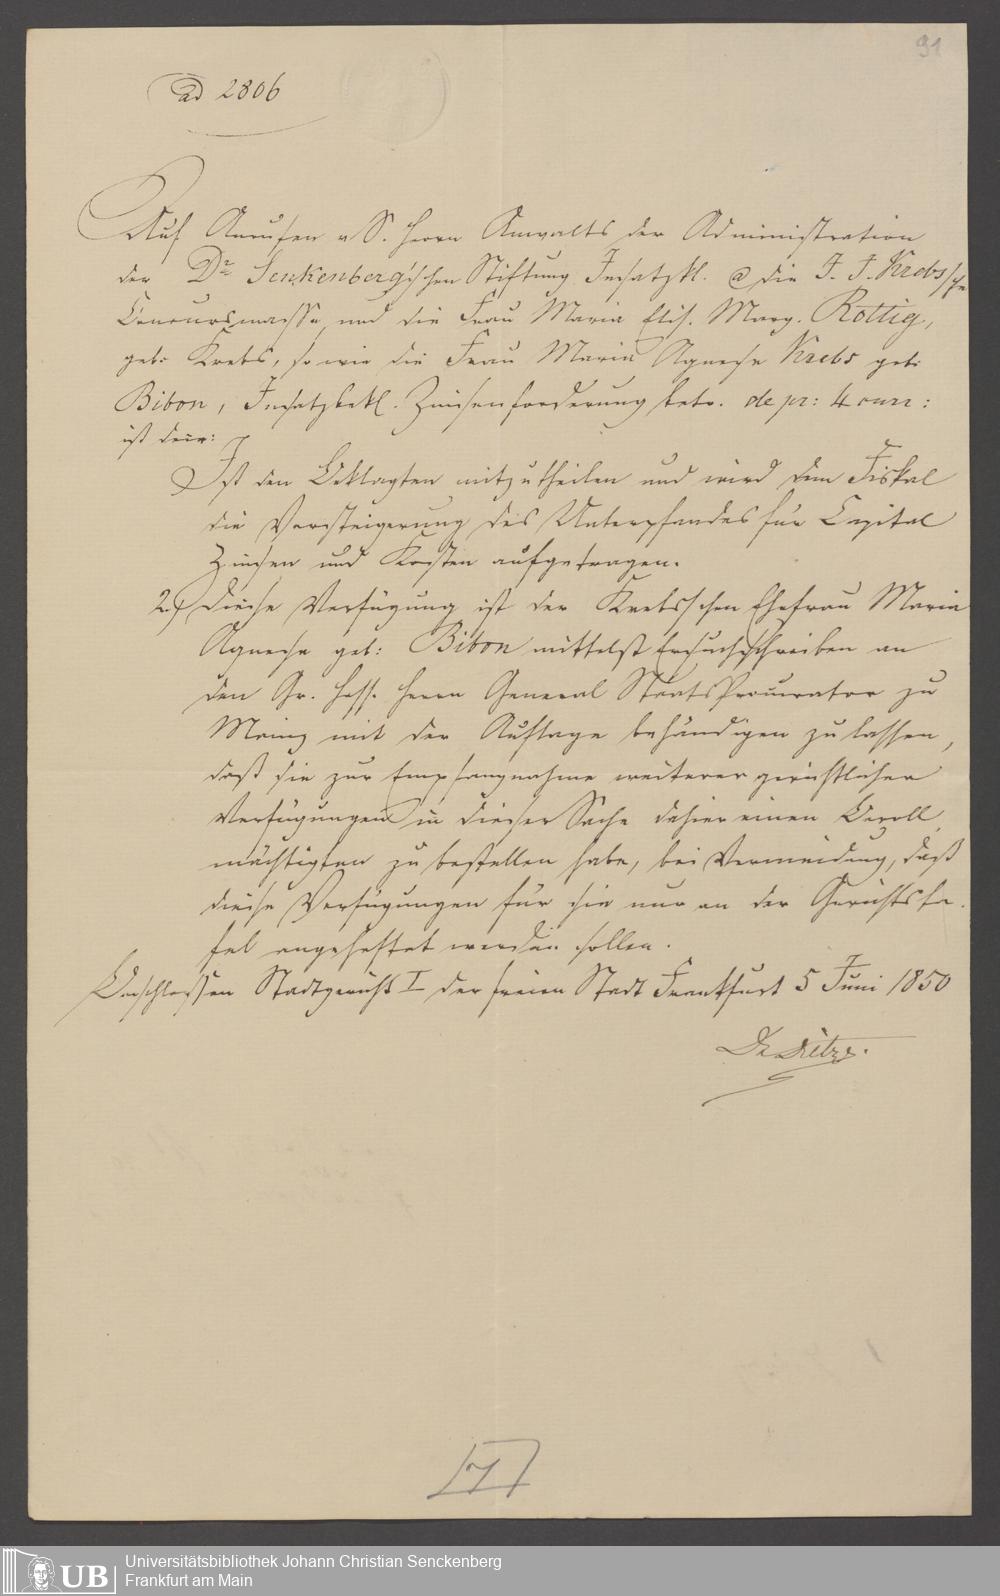 91
ad 2806
Auf Anrufen v. S. Herrn Anwalts der Administration
der Dr. Senkenberg'schen Stiftung Insatzkl. @ die J. J. Krebs'sche
Concursmasse und die Frau Maria Elis. Marg. Rottig,
geb: Krebs, so wie die Frau Maria Agnese Krebs geb:
Bibon, Insatzbekl. Zinsenforderung betr. de pr: 4 curr:
ist decr:
Ist den Beklagten mitzutheilen und wird dem Fiskal
die Versteigerung des Unterpfandes für Capital
Zinsen und Kosten aufgetragen.
2.) Diese Verfügung ist der Krebs'schen Ehefrau Maria
Agnese geb: Bibon mittelst Ersuchschreiben an
den Gr. Hess. Herrn General StaatsProcurator zu
Mainz mit der Auflage behändigen zu lassen,
daß sie zur Empfangnahme weiterer gerichtlicher
Verfügungen in dieser Sache dahier einen Bevoll,
mächtigten zu bestellen habe, bei Vermeidung, daß
diese Verfügungen für sie nur an der Gerichtsta-
fel angeheftet werden sollen.
Beschlossen Stadtgericht I der freien Stadt Frankfurt 5 Juni 1850
Universitätsbibliothek Johann Christian Senckenberg
Frankfurt am Main
UB